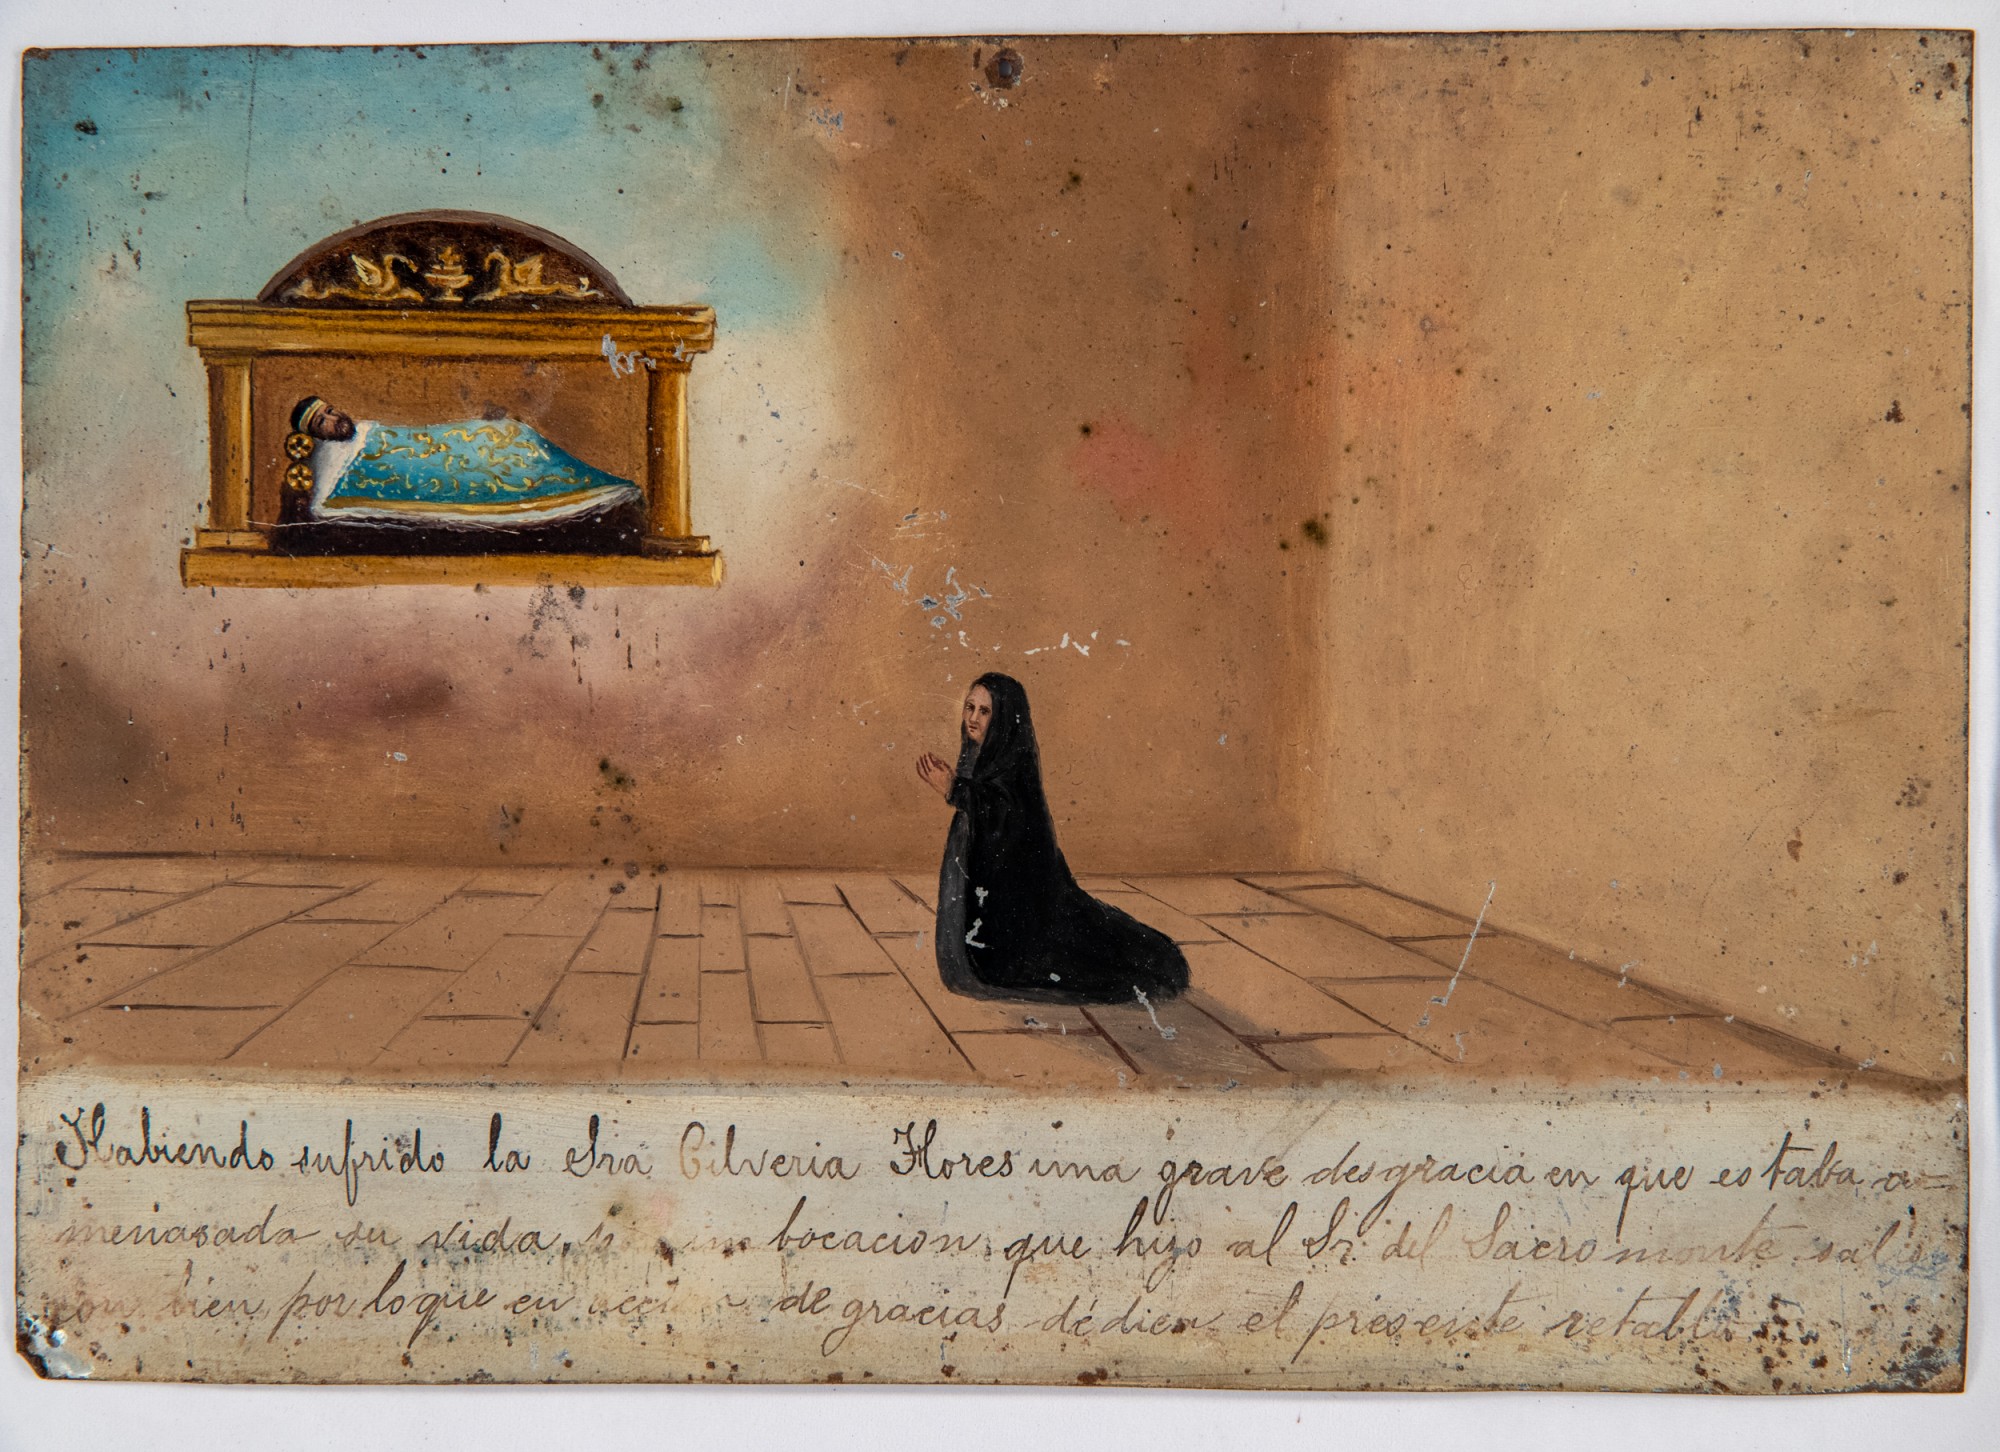 Habiendo sufrido la Sra Cilveria Flores una grave desgracia en que estaba a=
menasada su vida, bocacion que hizo al Sr. del Sacromonte salio
con bien por lo que en accion de gracias dédica el presente retablo